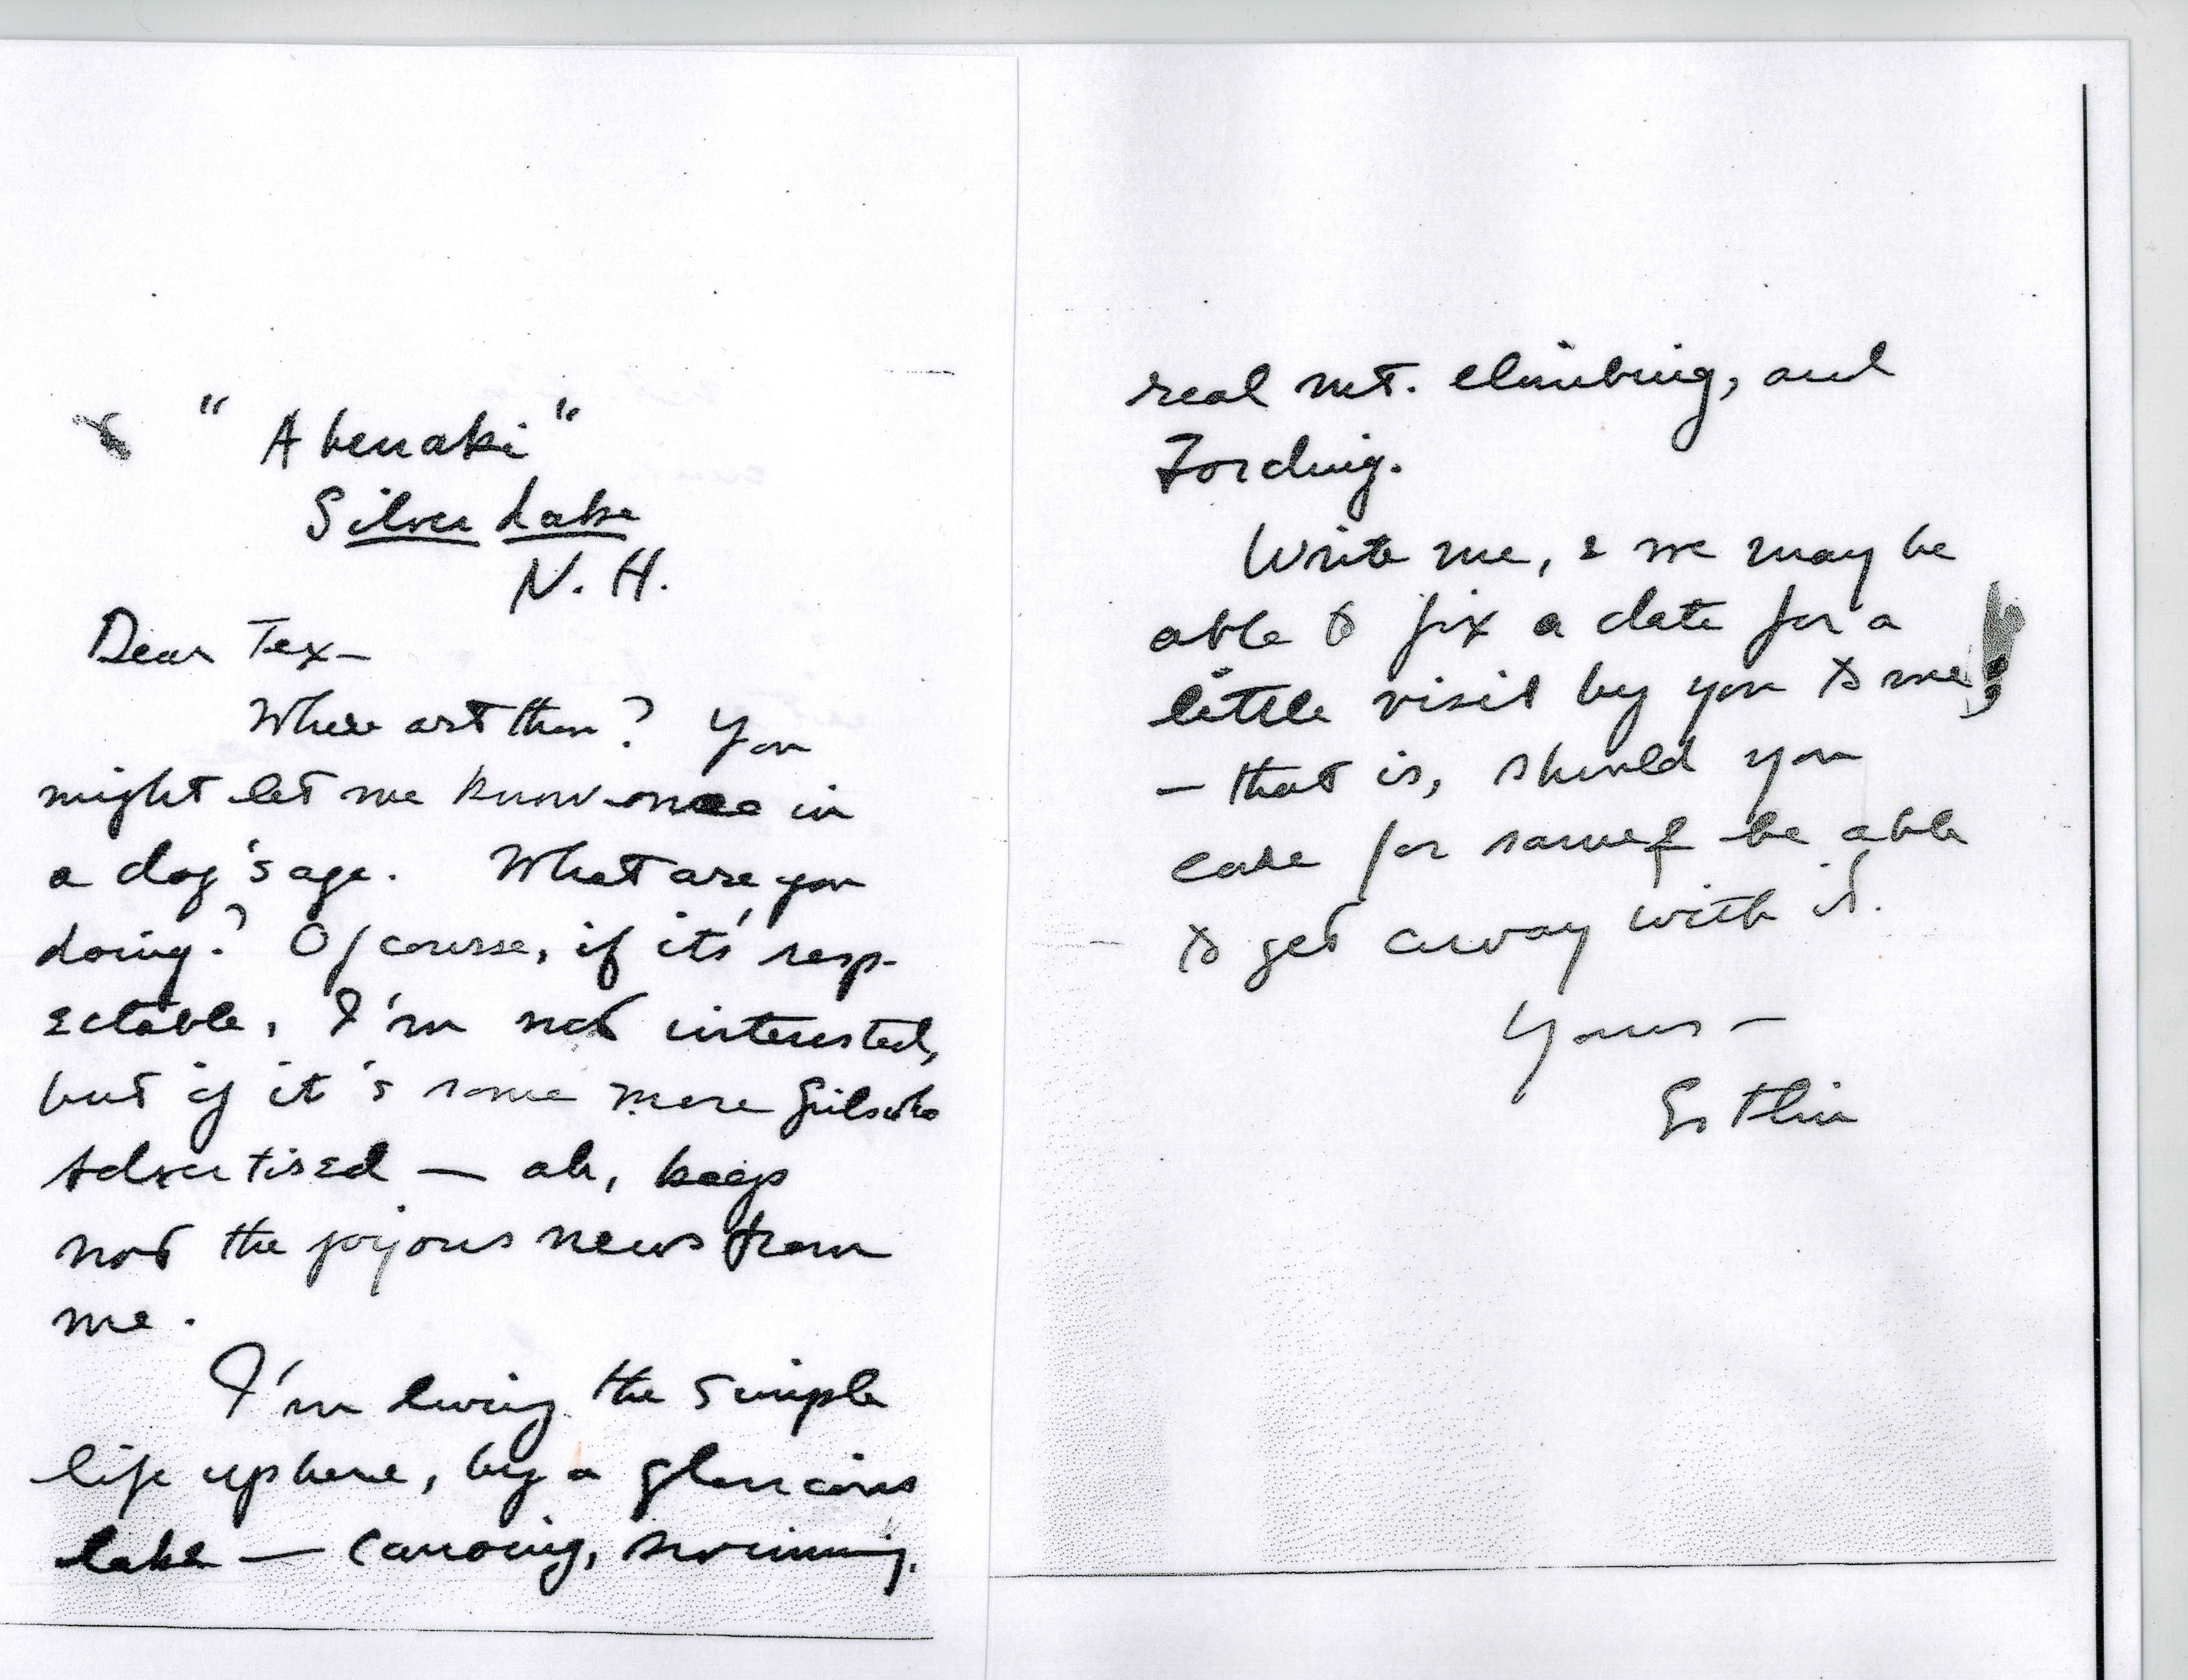 "Abenaki"
Silver Lake
N. H.
Dear Tex—
Where art thou? You
might let me know once in
a dog's age. What are you
doing? Of course, if it's resp-
ectable, I'm not interested,
but if it's some more Girls who
Advertised — ah, keep
not the joyous news from
me.
I'm living the simple
life up here, by a glorious
lake — canoeing, swimming,
real mt. climbing, and
Fording.
Write me, & we may be
able to fix a date for a
little visit by you to me;
— that is, should you
care for same & be able
to get away with it.
Yours —
Estlin